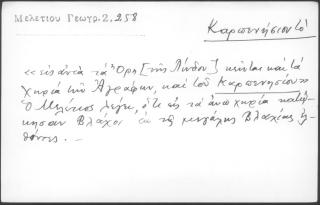 Μελετίου Γεωγρ. 2. 258
Καρπενήσιον τό
«εἰς αὐτὰ τὰ Ὄρη [τῆς Πίνδου] κεῖνται καὶ τὰ
χωρία τῶν Ἀγράφων, καὶ τοῦ Καρπενησίου»
Ὁ Μελέτιος λέγει, ὅτι εἰς τὰ ἄνω χωρία κατῴ-
κησαν Βλάχοι ἐκ τῆς μεγάλης Βλαχίας ἐλ-
θόντες. —